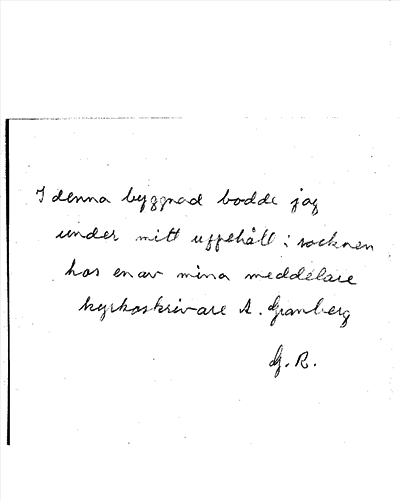 I denna byggnad bodde jag
under mitt uppehåll i socknen
hos en av mina meddelare
kyrkoskrivare A. Granberg
G. R.